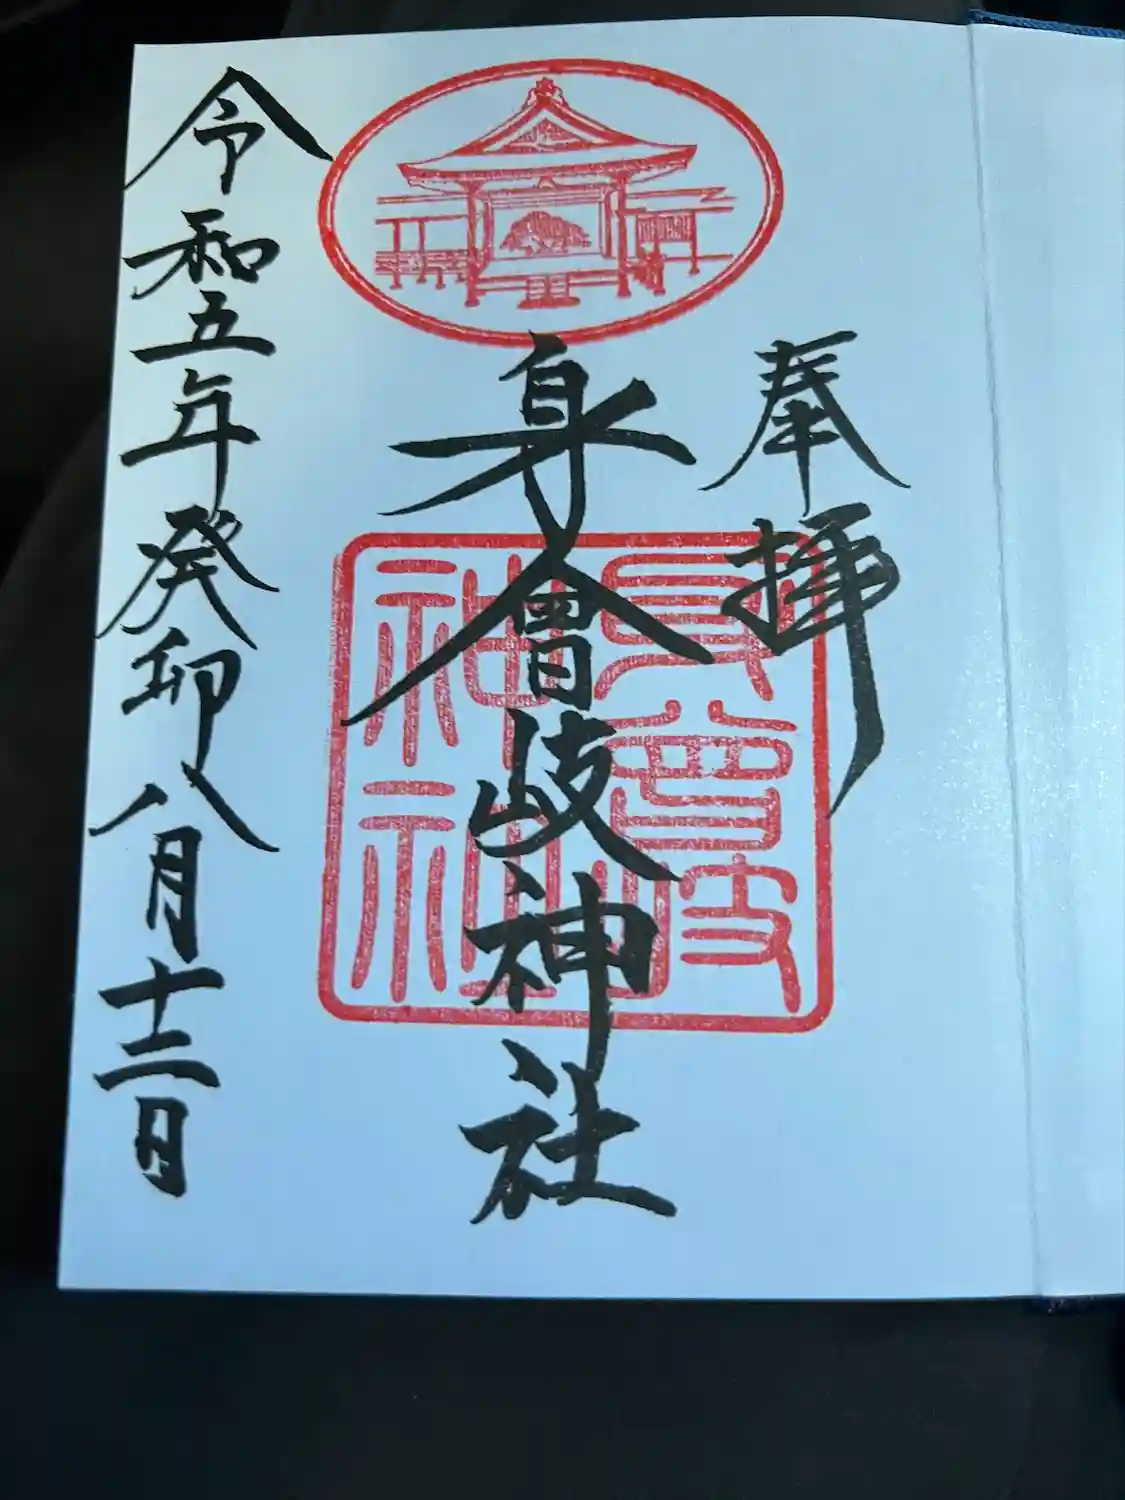 奉拝
身曾岐神社
身曾岐神社
令和五年癸卯八月十二日